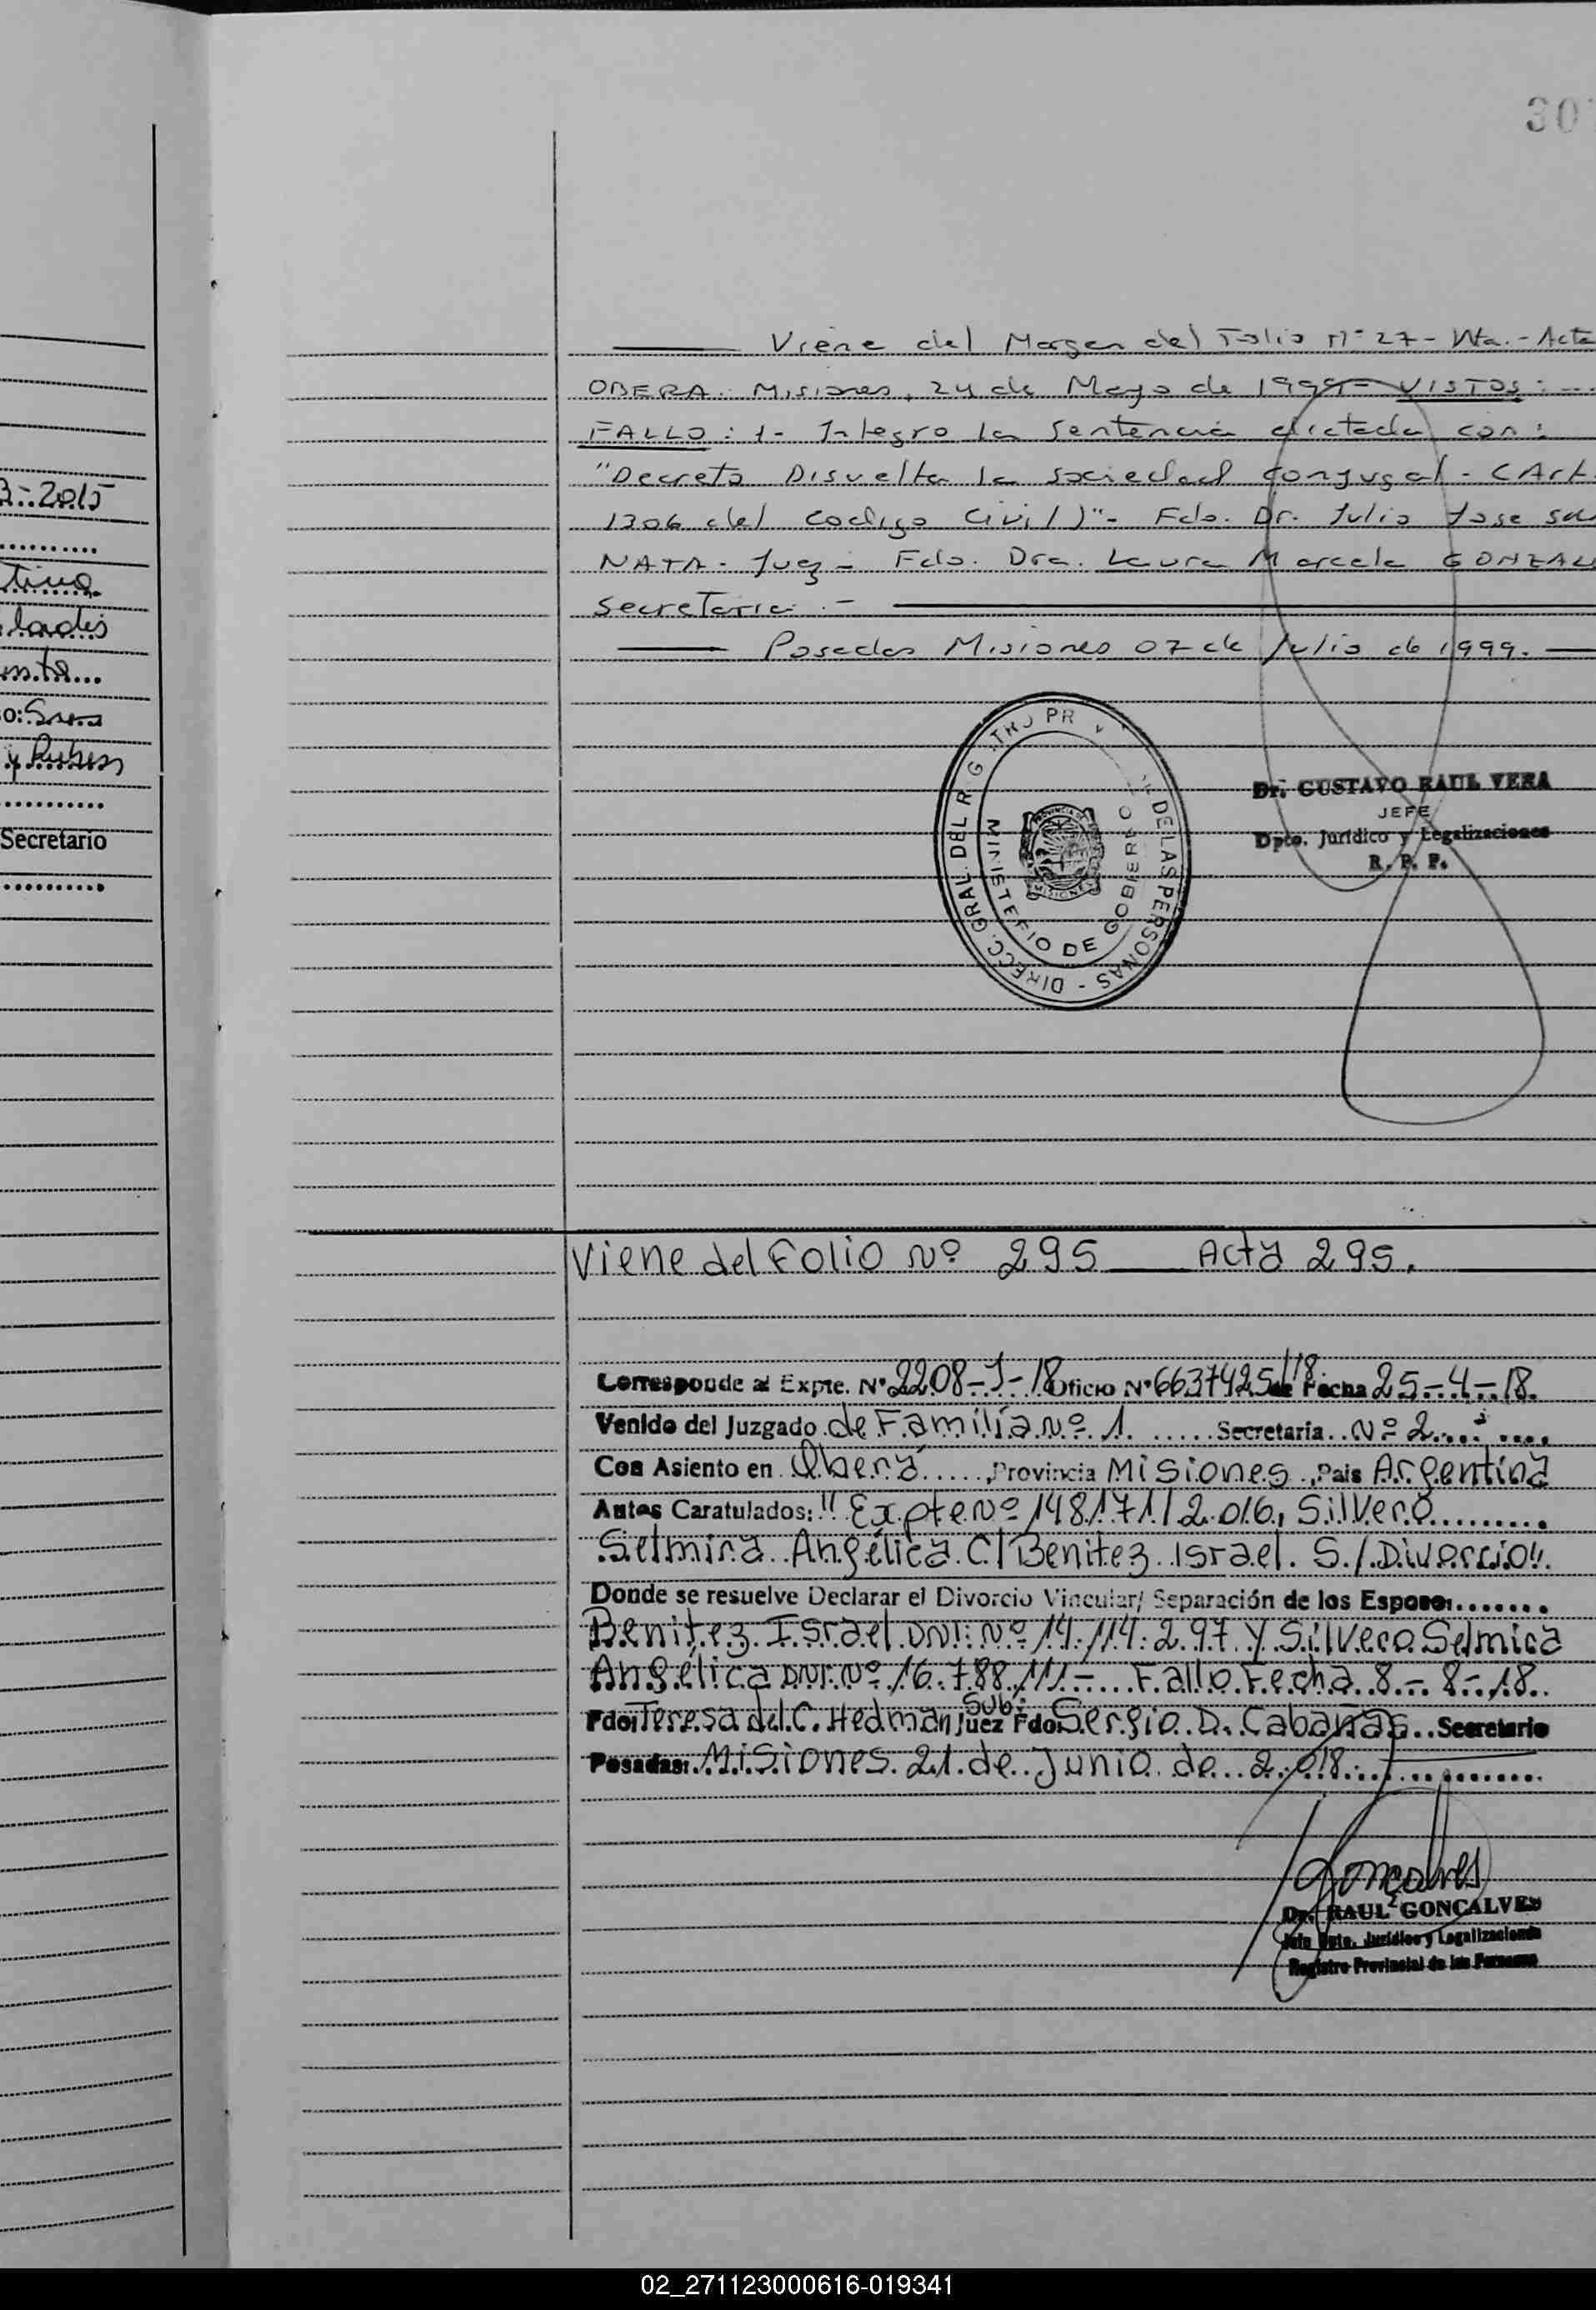 307
Viene del Margen del Folio Nº 27- Vta.- Acta
OBERA. Misiones, 24 de Mayo de 1999- VISTOS:...
FALLO: 1- Integro la sentencia dictada con:
"Decreto Disuelta la sociedad conyugal - (Art.
1306 del Codigo Civil)"- Fdo. Dr. Julio Jose
NATA- Juez - Fdo. Dra. Laura Marcela GONZAL
Secretaria.-
Posadas Misiones 07 de Julio de 1999.
DIRECC. GRAL. DEL DE LAS PERSONAS -
MINISTERIO DE GOBIERNO
PROVINCIA DE MISIONES
Dr. GUSTAVO RAUL VERA
JEFE
Dpto. Jurídico y Legalizaciones
R. P. P.
Viene del Folio Nº 295 Acta 295.
Corresponde al Expte. Nº 2208-J-18 Oficio Nº 6637425/18 de Fecha 25-4-18.
Venido del Juzgado de Familia Nº 1. Secretaria Nº 2
Con Asiento en Oberá, Provincia Misiones, Pais Argentina
Autos Caratulados: "Expte Nº 148171/2016, Silvero
Selmira Angélica C/ Benitez Israel. S/ Divorcio".
Donde se resuelve Declarar el Divorcio Vincular/ Separación de los Esposos:
Benitez Israel DNI: Nº 14.114.297 Y Silvero Selmira
Angélica DNI Nº 16.788.111- Fallo Fecha 8-8-18.
Fdo: Teresa del C. Hedman Juez Sub: Fdo: Sergio D. Cabañas Secretario
Posadas: Misiones 21 de Junio de 2.018
Goncalves
Dr. RAUL GONCALVES
Jefe Dpto. Jurídico y Legalizaciones
Registro Provincial de las Personas
2-2015
tina
ente
so:
y Ruben
Secretario
02_271123000616-019341